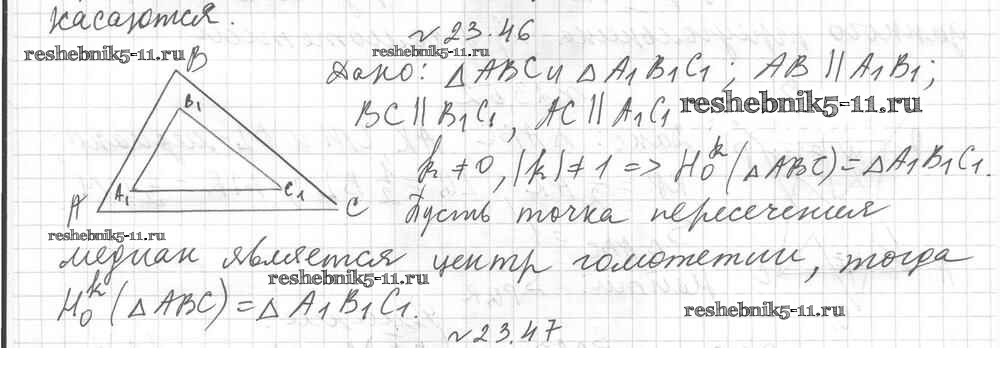 касаются.
№ 23.46
reshebnik5-11.ru
reshebnik5-11.ru
B
Дано: △ABC и △A₁B₁C₁; AB ∥ A₁B₁;
B₁
BC ∥ B₁C₁, AC ∥ A₁C₁ reshebnik5-11.ru
k ≠ 0, |k| ≠ 1 => H₀ᵏ(△ABC) = △A₁B₁C₁.
A₁ C₁
A C Пусть точка пересечения
reshebnik5-11.ru
медиан является центр гомотетии, тогда
reshebnik5-11.ru
H₀ᵏ(△ABC) = △A₁B₁C₁.
reshebnik5-11.ru
№ 23.47